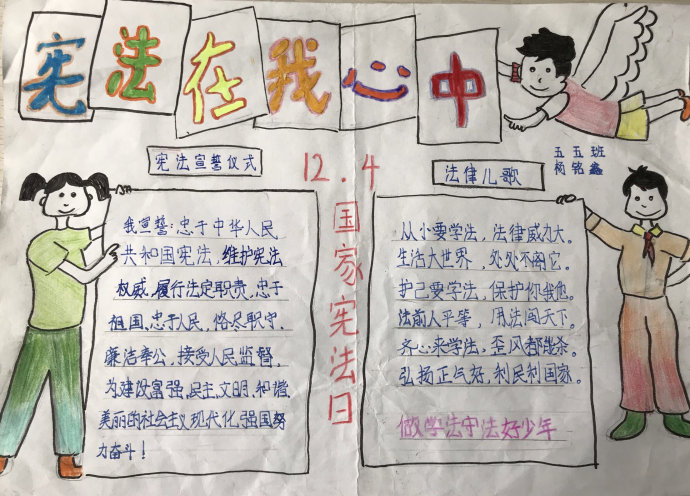 宪法在我心中
五五班
杨铭鑫
宪法宣誓仪式
我宣誓:忠于中华人民
共和国宪法,维护宪法
权威,履行法定职责,忠于
祖国、忠于人民,恪尽职守、
廉洁奉公,接受人民监督,
为建设富强、民主、文明、和谐、
美丽的社会主义现代化强国努
力奋斗!
12.4
国家宪法日
法律儿歌
从小要学法,法律威力大。
生活大世界,处处不离它。
护己要学法,保护你我他。
法前人平等,用法闯天下。
齐心来学法,歪风都能杀。
弘扬正气好,利民利国家。
做学法守法好少年